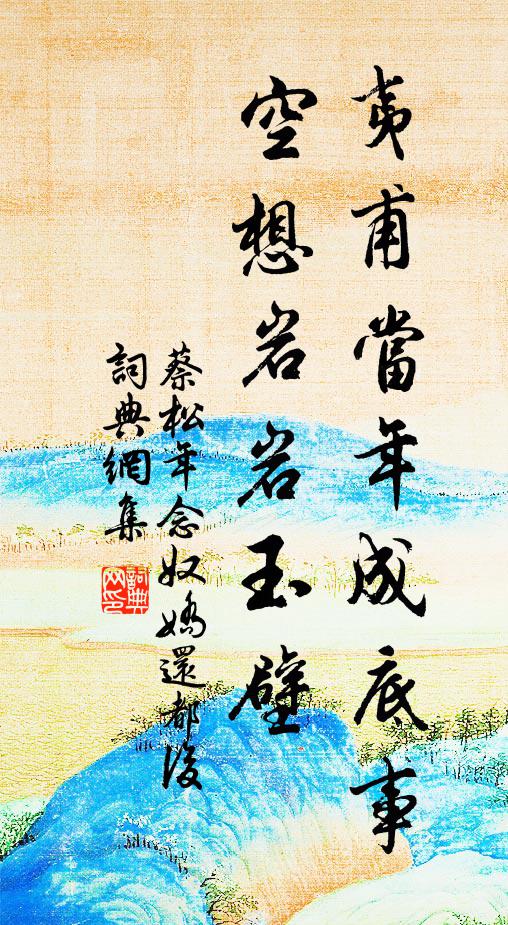 夷甫當年成底事
空想岩岩玉壁
蔡松年念奴嬌還都後
詞典網集
詞典網印